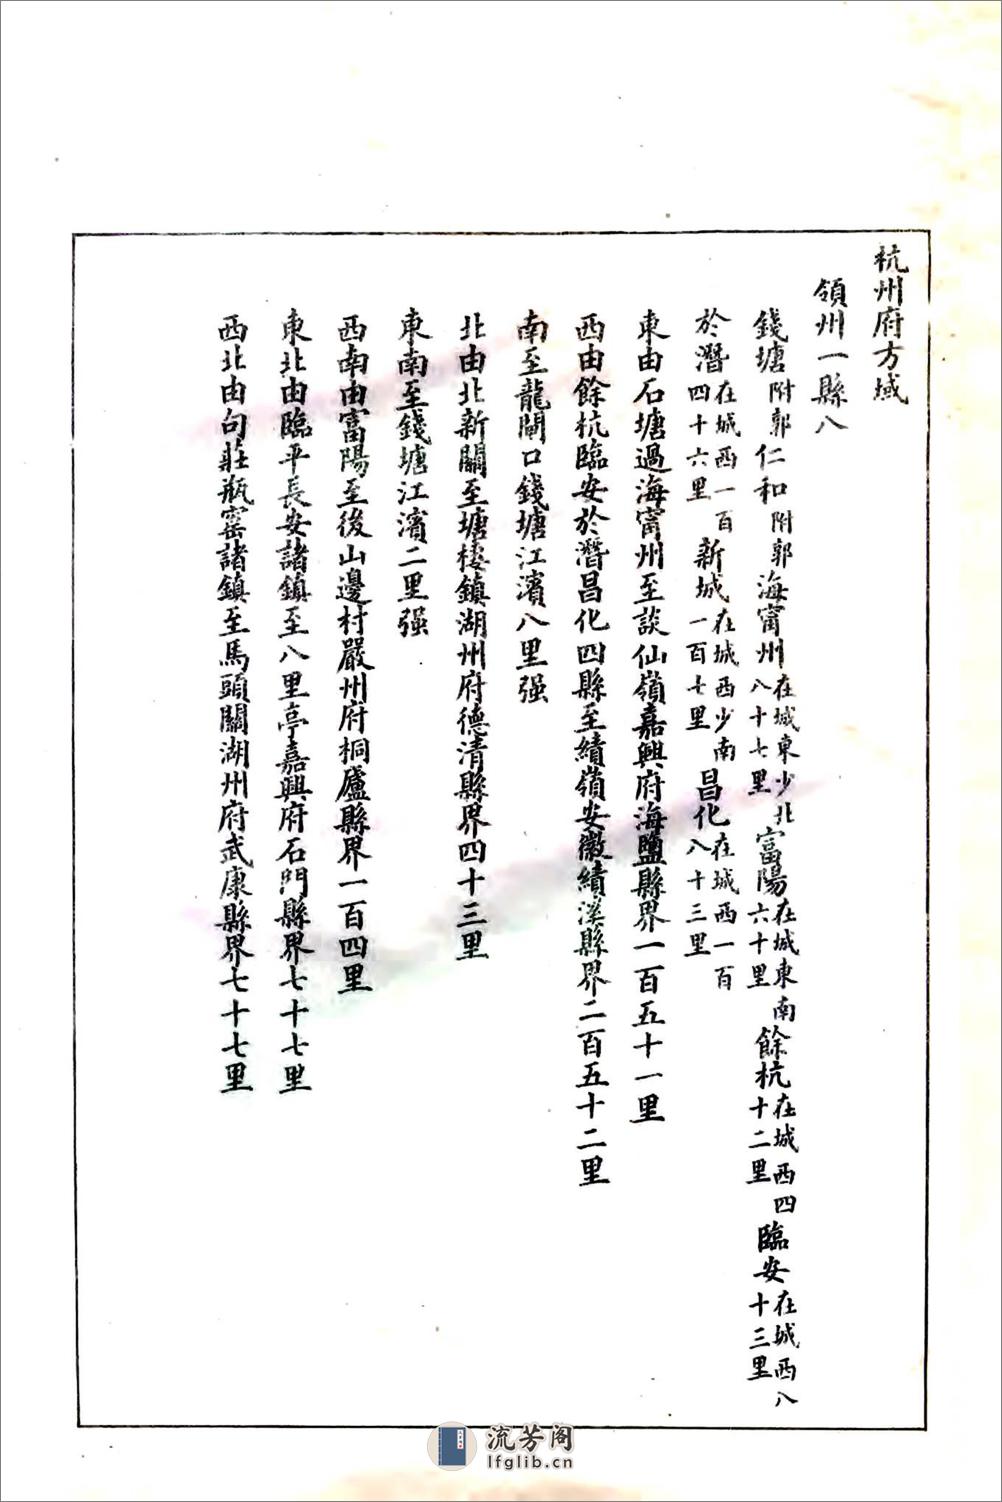 杭州府方域
領州一縣八
錢塘附郭仁和附郭海甯州在城東少北八十七里富陽在城東南六十里餘杭在城西四十二里臨安在城西八十三里
於潛在城西一百四十六里新城在城西少南一百七里昌化在城西一百八十三里
東由石塘過海甯州至談仙嶺嘉興府海鹽縣界一百五十一里
西由餘杭臨安於潛昌化四縣至績嶺安徽績溪縣界二百五十二里
南至龍閘口錢塘江濱八里强
北由北新關至塘棲鎮湖州府德清縣界四十三里
東南至錢塘江濱二里强
西南由富陽至後山邊村嚴州府桐廬縣界一百四里
東北由臨平長安諸鎮至八里亭嘉興府石門縣界七十七里
西北由句莊瓶窰諸鎮至馬頭關湖州府武康縣界七十七里
流芳阁
lfglib.cn